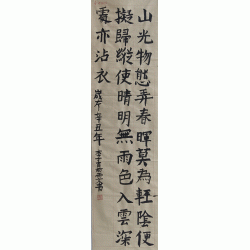 山光物態弄春暉莫為輕陰便
擬歸縱使晴明無雨色入雲深
處亦沾衣 歲在辛丑年 李